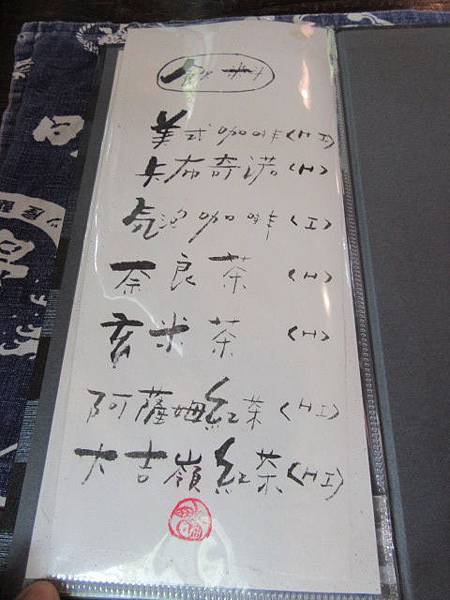 飲料
美式咖啡<HI>
卡布奇诺<H>
氣泡咖啡<I>
奈良茶<H>
玄米茶<H>
阿薩姆紅茶<HI>
大吉嶺紅茶<HI>